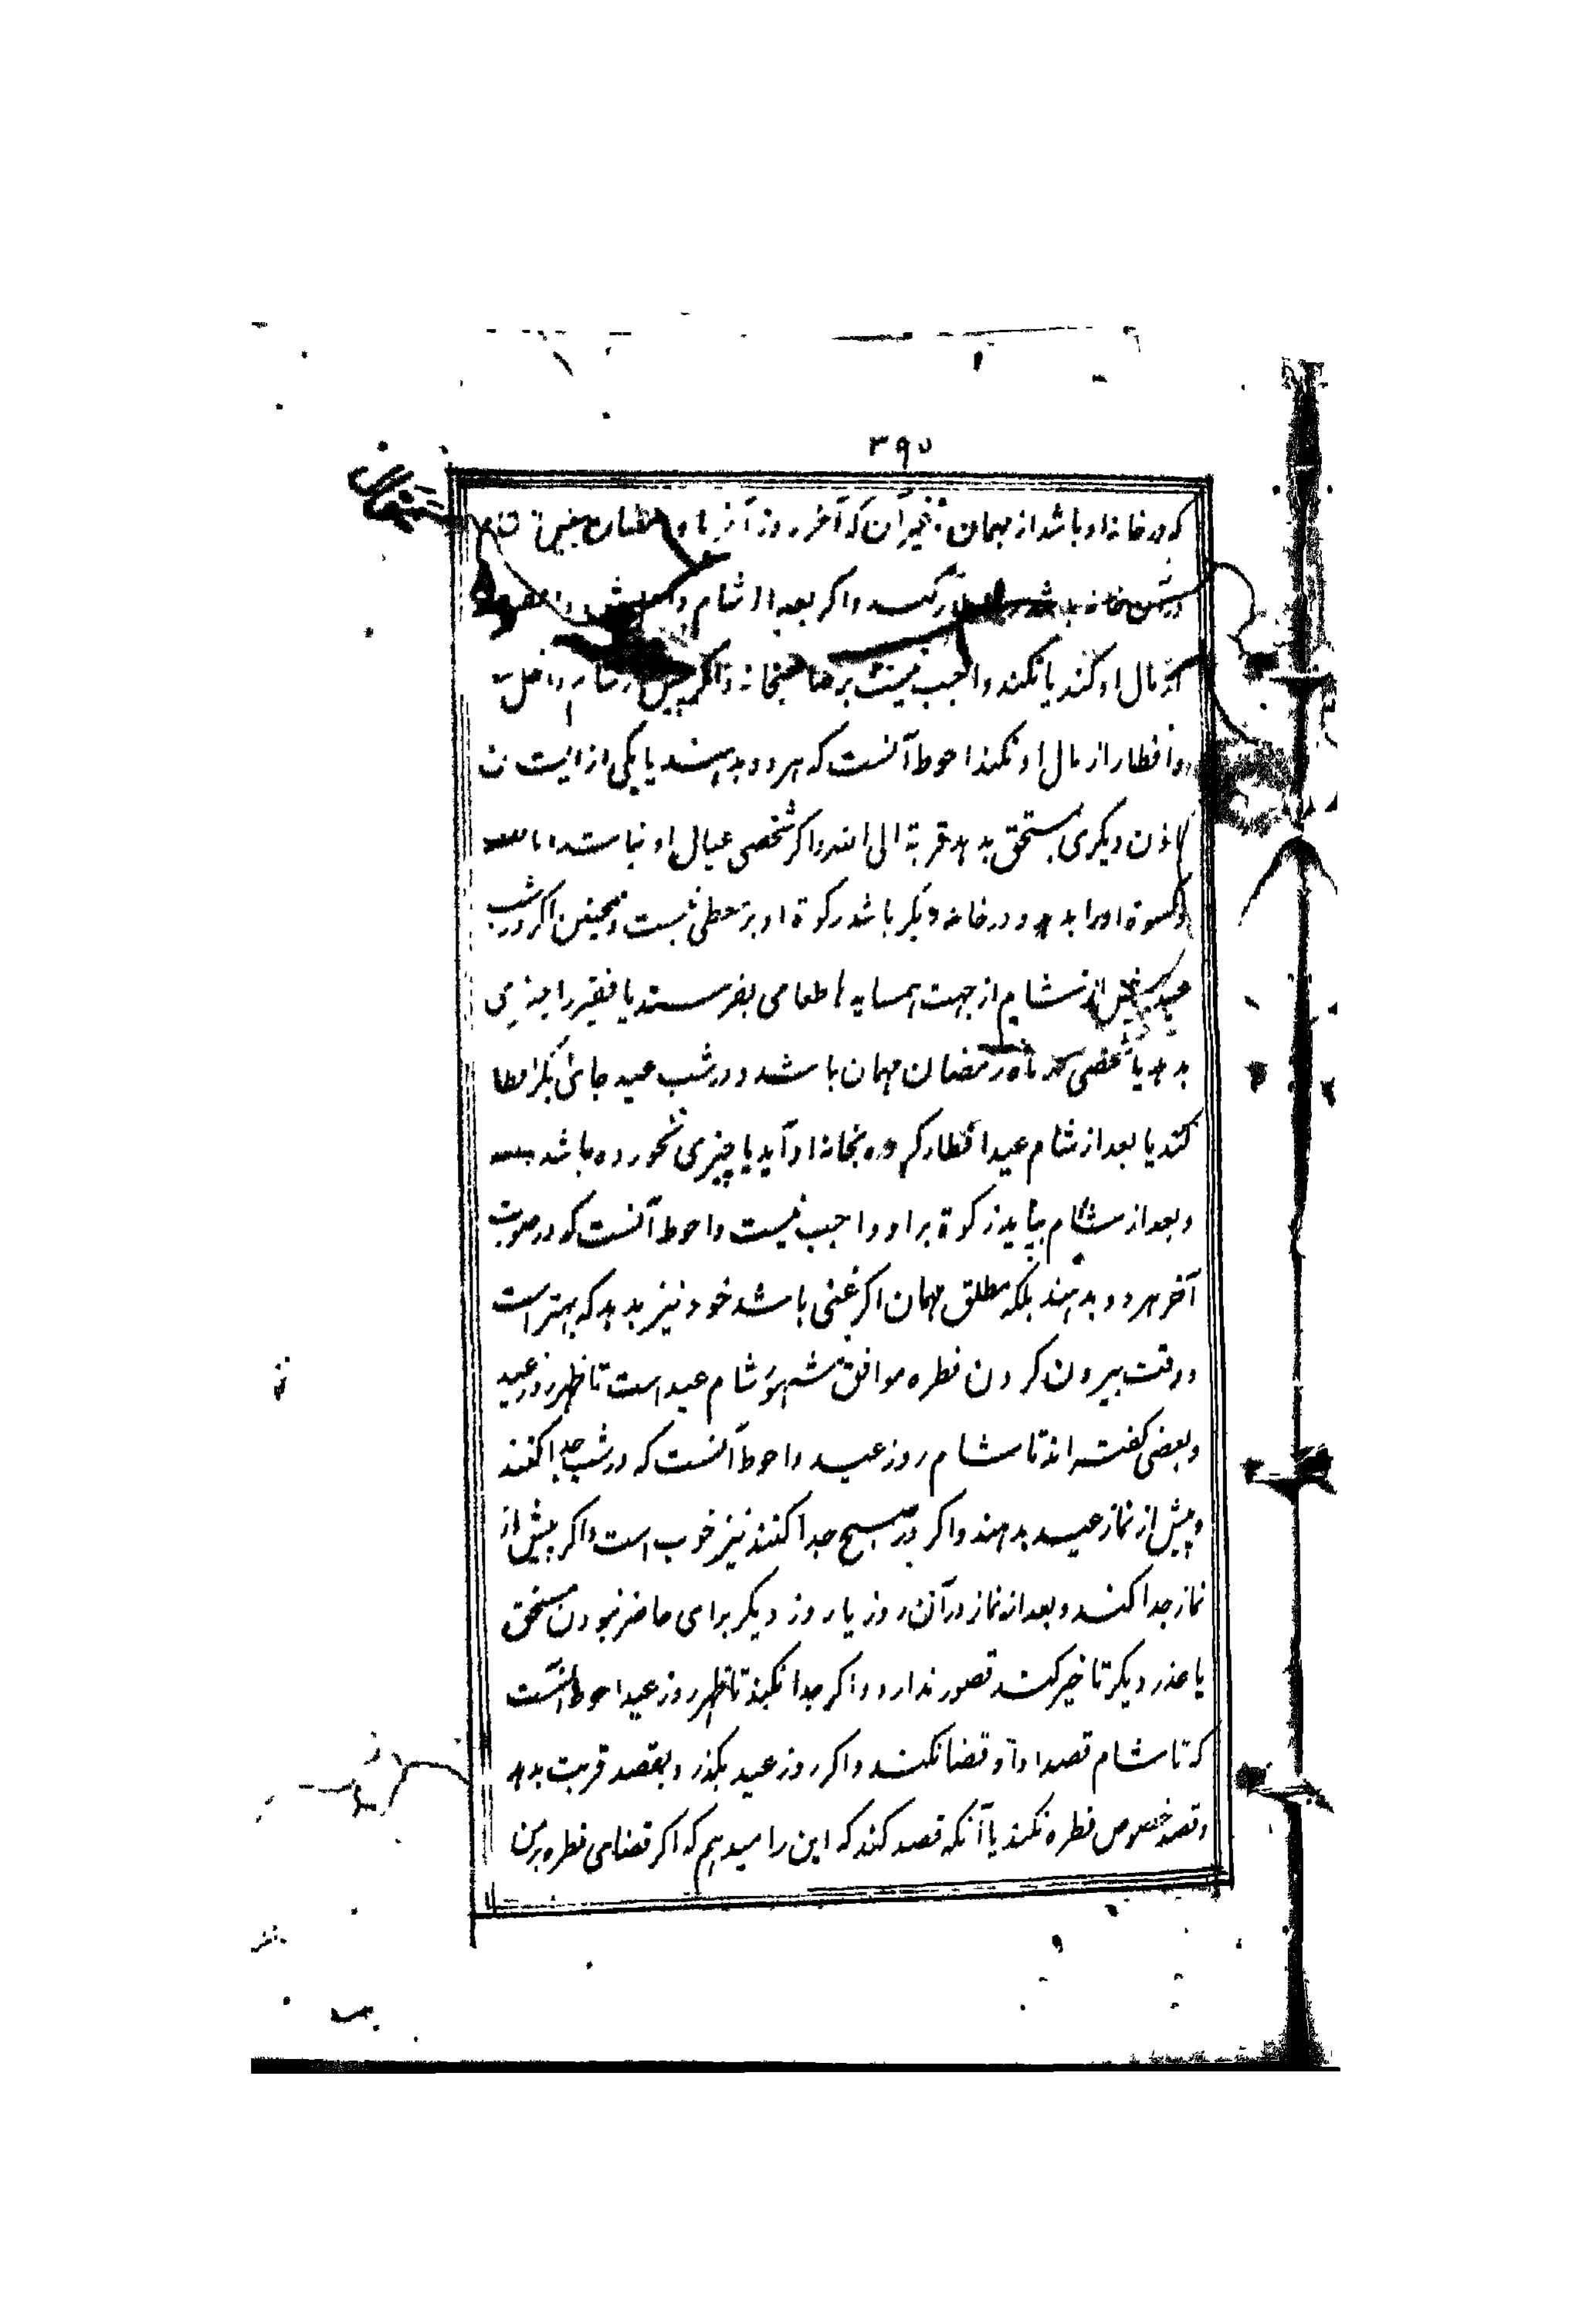 ٣٩٥
که در خانه او باشد از مهمان و غیر آن که آخر روز آخر ماه رمضان پیش از شام
در آن خانه باشد کند و اگر بعد از شام
از مال او کند یا نکند واجب نیست بر صاحبخانه و اگر پیش از شام داخل
و افطار از مال او نکند احوط آنست که هر دو بدهند یا یکی از ایشان
باذن دیگری بمستحق بدهد قربة الی الله و اگر شخصی عیال او نباشد اما
و کسوة او را بدهد و در خانه دیگر باشد زکوة او بر معطی نیست و همچنین اگر در شب
عید پیش از شام از جهت همسایه طعامی بفرستد یا فقیر را چیزی
بدهد یا شخصی که ماه رمضان مهمان باشد و در شب عید جای دیگر افطار
کند یا بعد از شام عید افطار کرده بخانه او آید یا چیزی نخورده باشد
و بعد از شام بیاید زکوة بر او واجب نیست و احوط آنست که در صورت
آخر هر دو بدهند بلکه مطلق مهمان اگر غنی باشد خود نیز بدهد که بهتر است
و وقت بیرون کردن فطره موافق مشهور شام عید است تا ظهر روز عید
و بعضی گفته اند تا شام روز عید و احوط آنست که در شب جدا کنند
و پیش از نماز عید بدهند و اگر در صبح جدا کنند نیز خوب است و اگر پیش از
نماز جدا کند و بعد از نماز در آن روز یا روز دیگر برای حاضر نبودن مستحق
یا عذر دیگر تاخیر کند قصور ندارد و اگر جدا نکند تا ظهر روز عید احوط آنست
که تا شام قصد ادا و قضا نکند و اگر روز عید بگذرد بقصد قربت بدهد
و قصد خصوص فطره نکند یا آنکه قصد کند که این را میدهم که اگر قضای فطره بر من